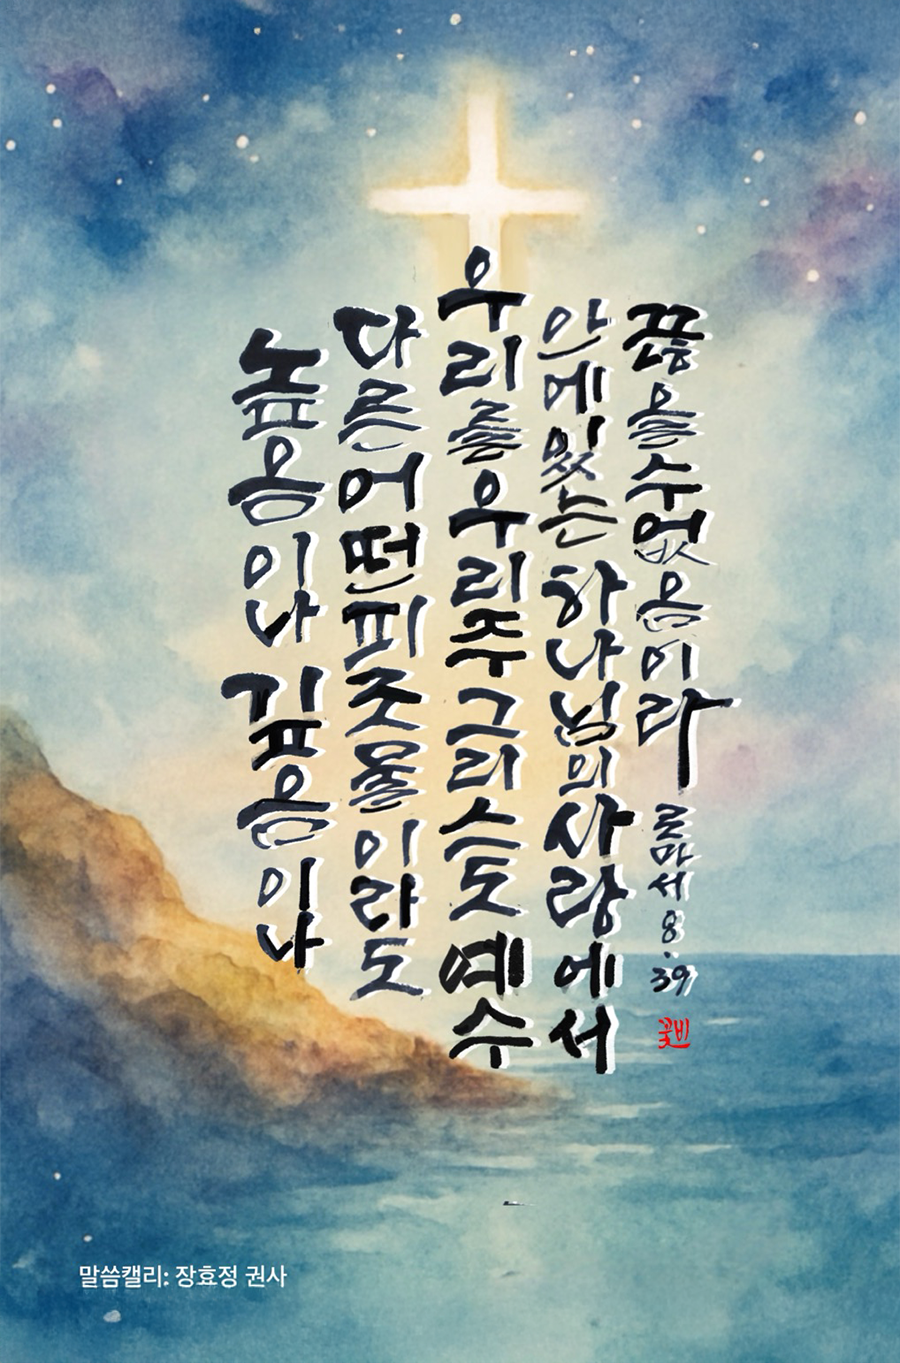 높음이나 깊음이나
다른어떤피조물이라도
우리를우리주그리스도예수
안에있는하나님의사랑에서
끊을수없음이라
로마서8.39
꽃비
말씀캘리: 장효정 권사